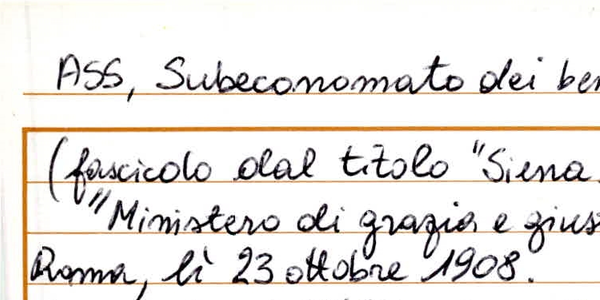 ASS, Subeconomato dei ben
(fascicolo dal titolo "Siena
"Ministero di grazia e gius
Roma, lì 23 ottobre 1908.